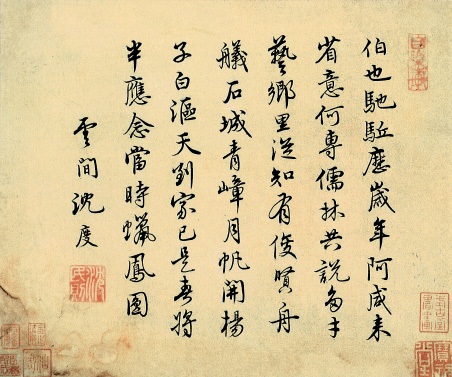 伯也馳駈歷歲年阿咸来
省意何專儒林共説多才
藝鄉里從知有俊賢舟
艤石城青嶂月帆開楊
子白漚天到家已是春將
半應念當時蠟鳳圓
雲間沈度